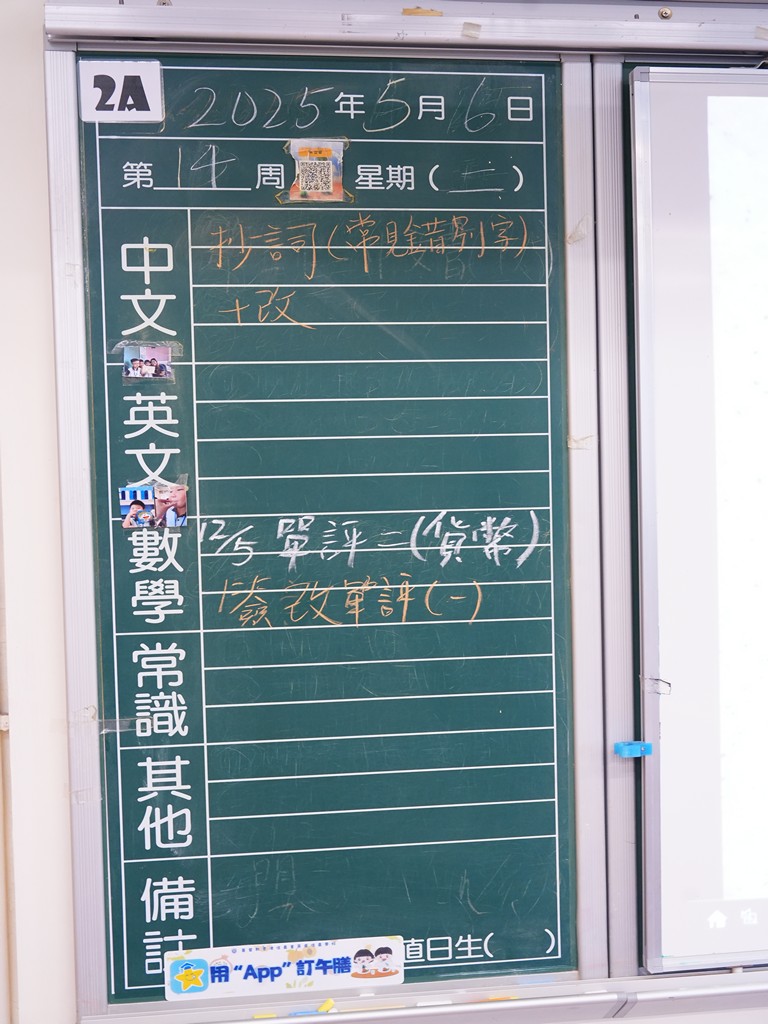 2A
2025年5月6日
第14周 星期(二)
中文
抄詞(常見錯別字)
+改
英文
數學
12/5 單評二(貨幣)
發改單評(一)
常識
其他
備註
值日生( )
用“App”訂午膳